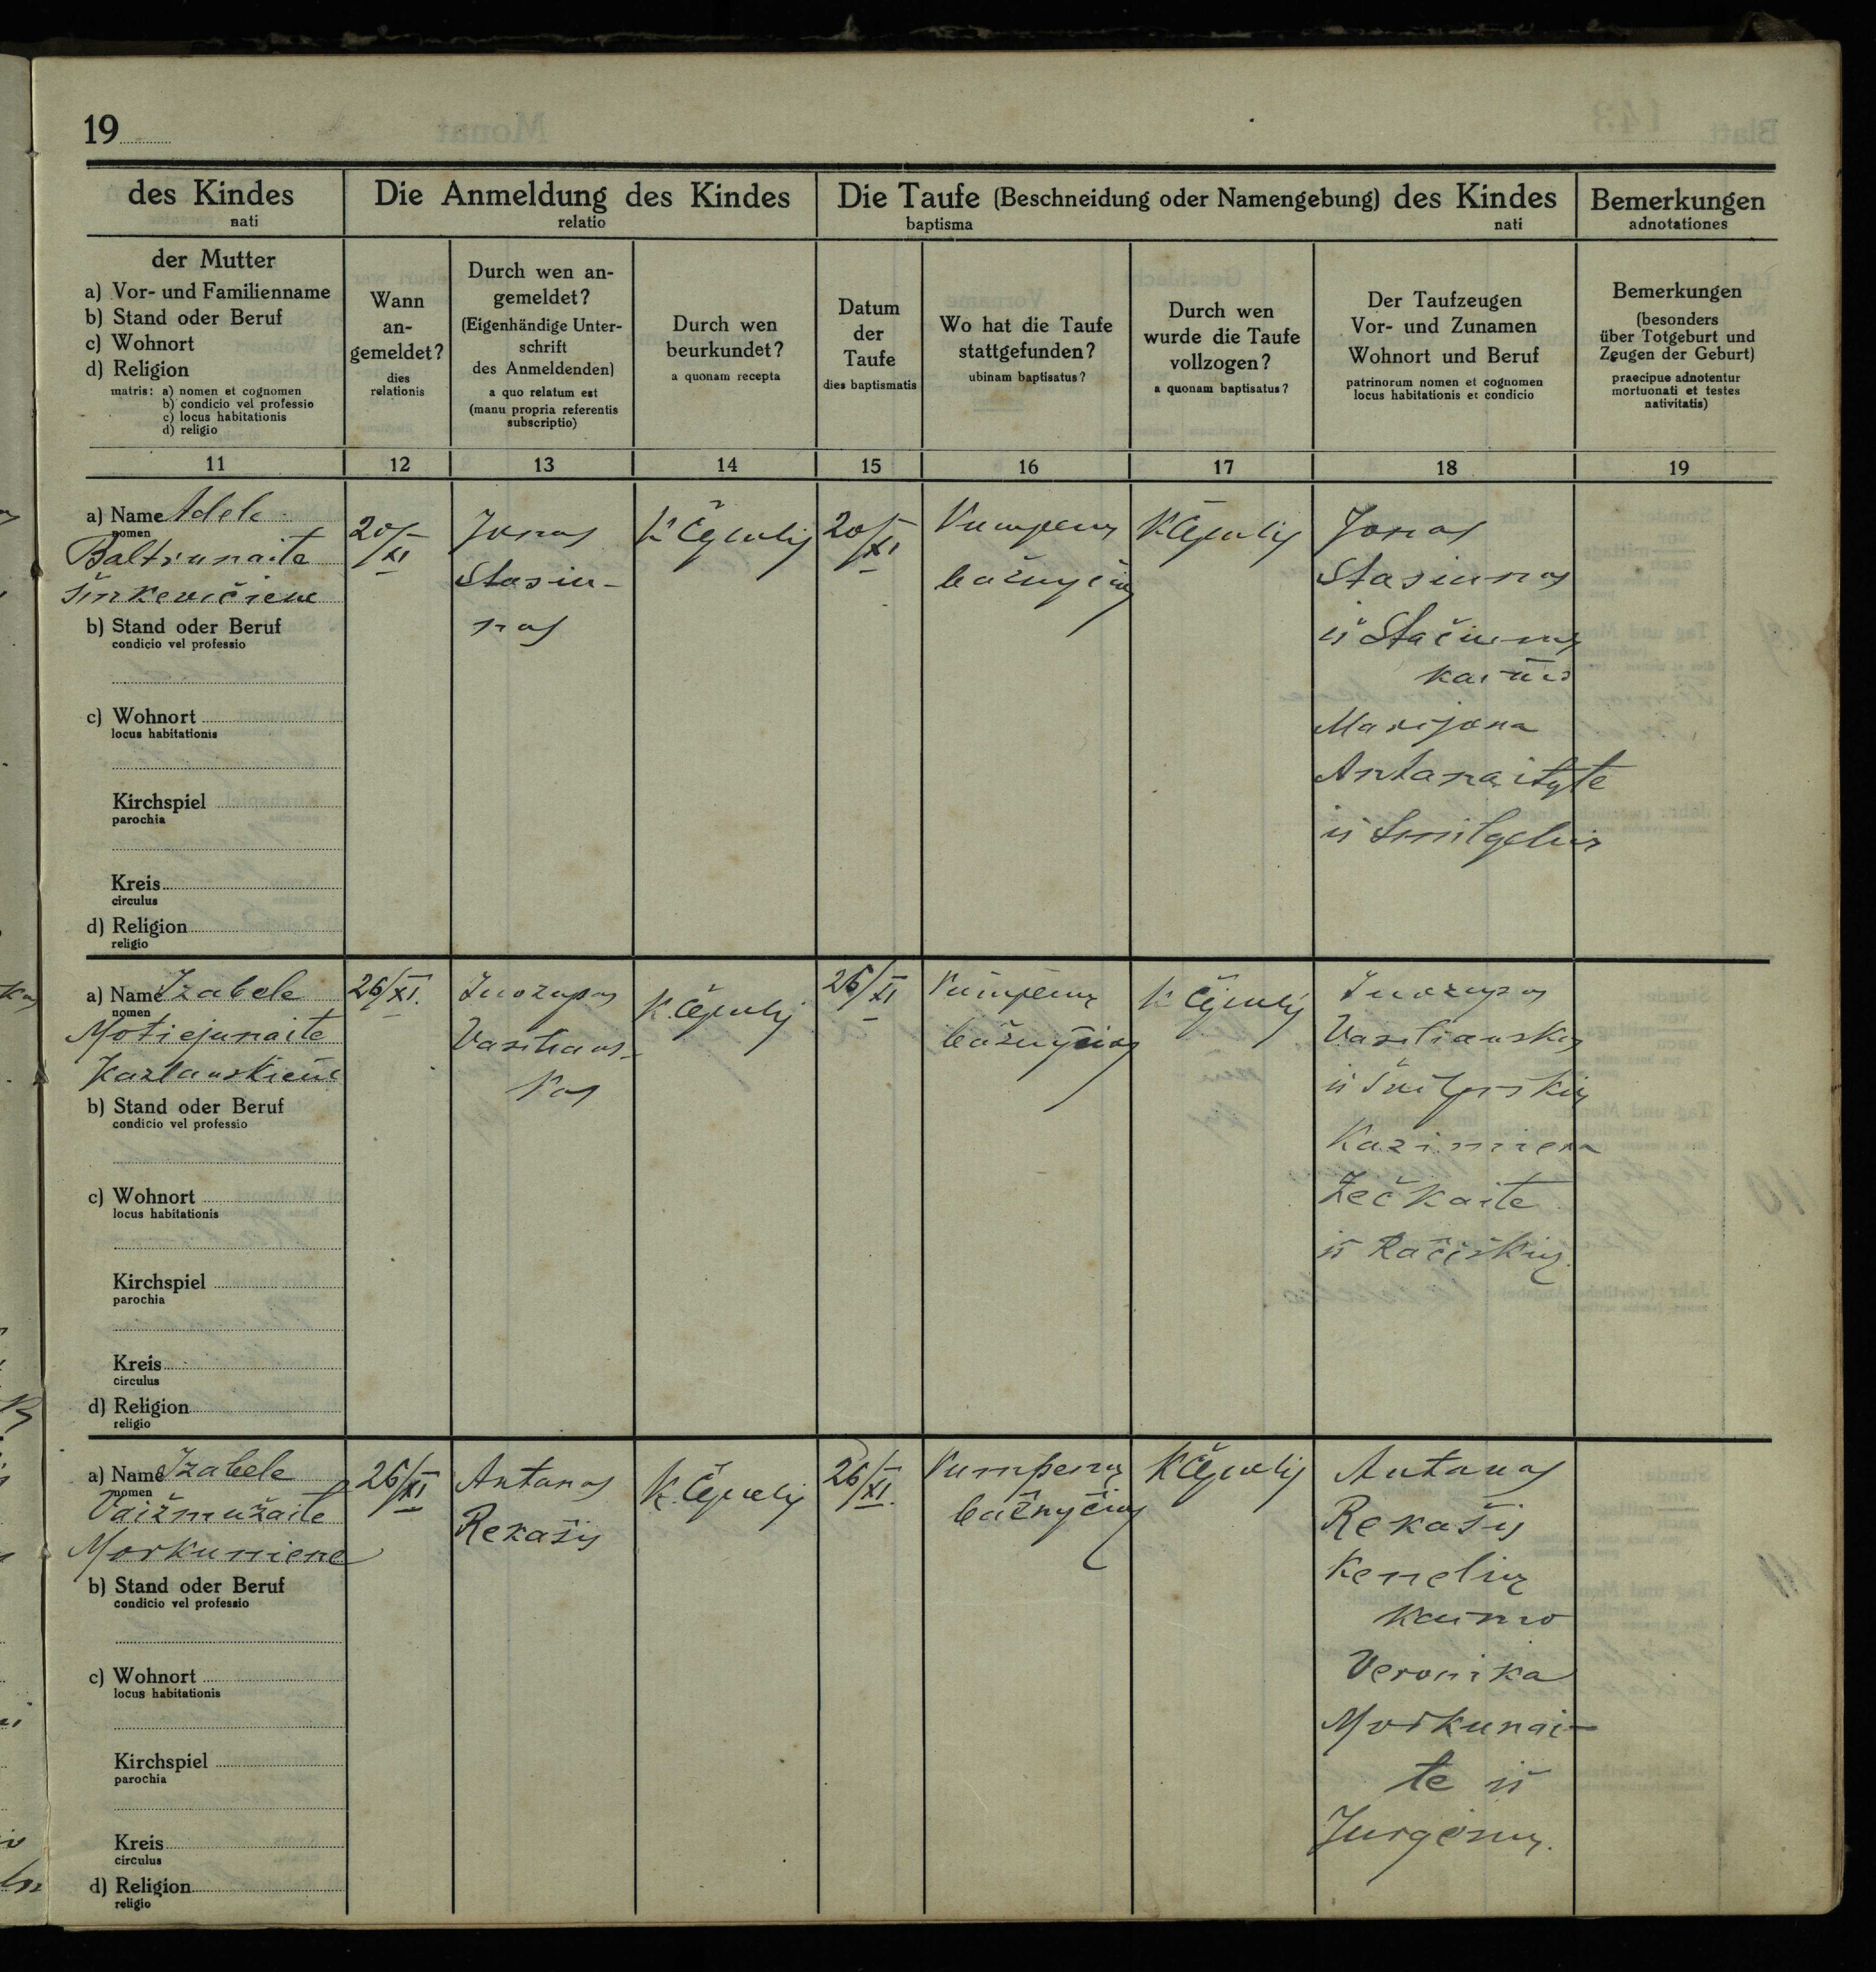 19
des Kindes
nati
Die Anmeldung des Kindes
relatio
Die Taufe (Beschneidung oder Namengebung) des Kindes
baptisma nati
Bemerkungen
adnotationes
der Mutter
a) Vor- und Familienname
b) Stand oder Beruf
c) Wohnort
d) Religion
matris: a) nomen et cognomen
b) condicio vel professio
c) locus habitationis
d) religio
Wann
an-
gemeldet?
dies
relationis
Durch wen an-
gemeldet?
(Eigenhändige Unter-
schrift
des Anmeldenden)
a quo relatum est
(manu propria referentis
subscriptio)
Durch wen
beurkundet?
a quonam recepta
Datum
der
Taufe
dies baptismatis
Wo hat die Taufe
stattgefunden?
ubinam baptisatus?
Durch wen
wurde die Taufe
vollzogen?
a quonam baptisatus?
Der Taufzeugen
Vor- und Zunamen
Wohnort und Beruf
patrinorum nomen et cognomen
locus habitationis et condicio
Bemerkungen
(besonders
über Totgeburt und
Zeugen der Geburt)
praecipue adnotentur
mortuonati et testes
nativitatis)
11 12 13 14 15 16 17 18 19
a) Name Adele
nomen
Baltrunaite
Šinkevičiene
b) Stand oder Beruf
condicio vel professio
c) Wohnort
locus habitationis
Kirchspiel
parochia
Kreis
circulus
d) Religion
religio
20/XI
Jonas
Stasiu-
nas
20/XI
Jonas
Stasiunas
iš Stačiunų
kaimo
Marijona
Antanaityte
iš Smilgelių
a) Name Izabele
nomen
Motiejunaite
Kazlauskienė
b) Stand oder Beruf
condicio vel professio
c) Wohnort
locus habitationis
Kirchspiel
parochia
Kreis
circulus
d) Religion
religio
26/XI.
Juozapas
Vasiliaus-
kas
26/XI
Juozapas
Vasiliauskas
iš
Kazimiera
Žečkaite
iš Račiškių
a) Name Izabele
nomen
Vaižmužaite
Morkuniene
b) Stand oder Beruf
condicio vel professio
c) Wohnort
locus habitationis
Kirchspiel
parochia
Kreis
circulus
d) Religion
religio
26/XI
Antanas
Rekašis
26/XI.
Vumpenų
bažnyčioj
Antanas
Rekašis
Kenelių
kaimo
Veronika
Morkunai-
te iš
Jurgėnų.